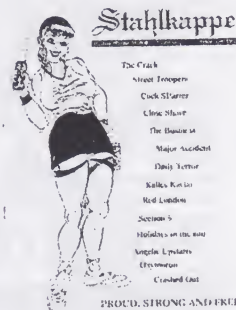 Stahlkappe
The Crack
Street Troopers
Cock Sparrer
Close Shave
The Business
Major Accident
Daily Terror
Red London
Section 5
Holidays in the sun
Angelic Upstarts
Crashed Out
PROUD, STRONG AND FREE